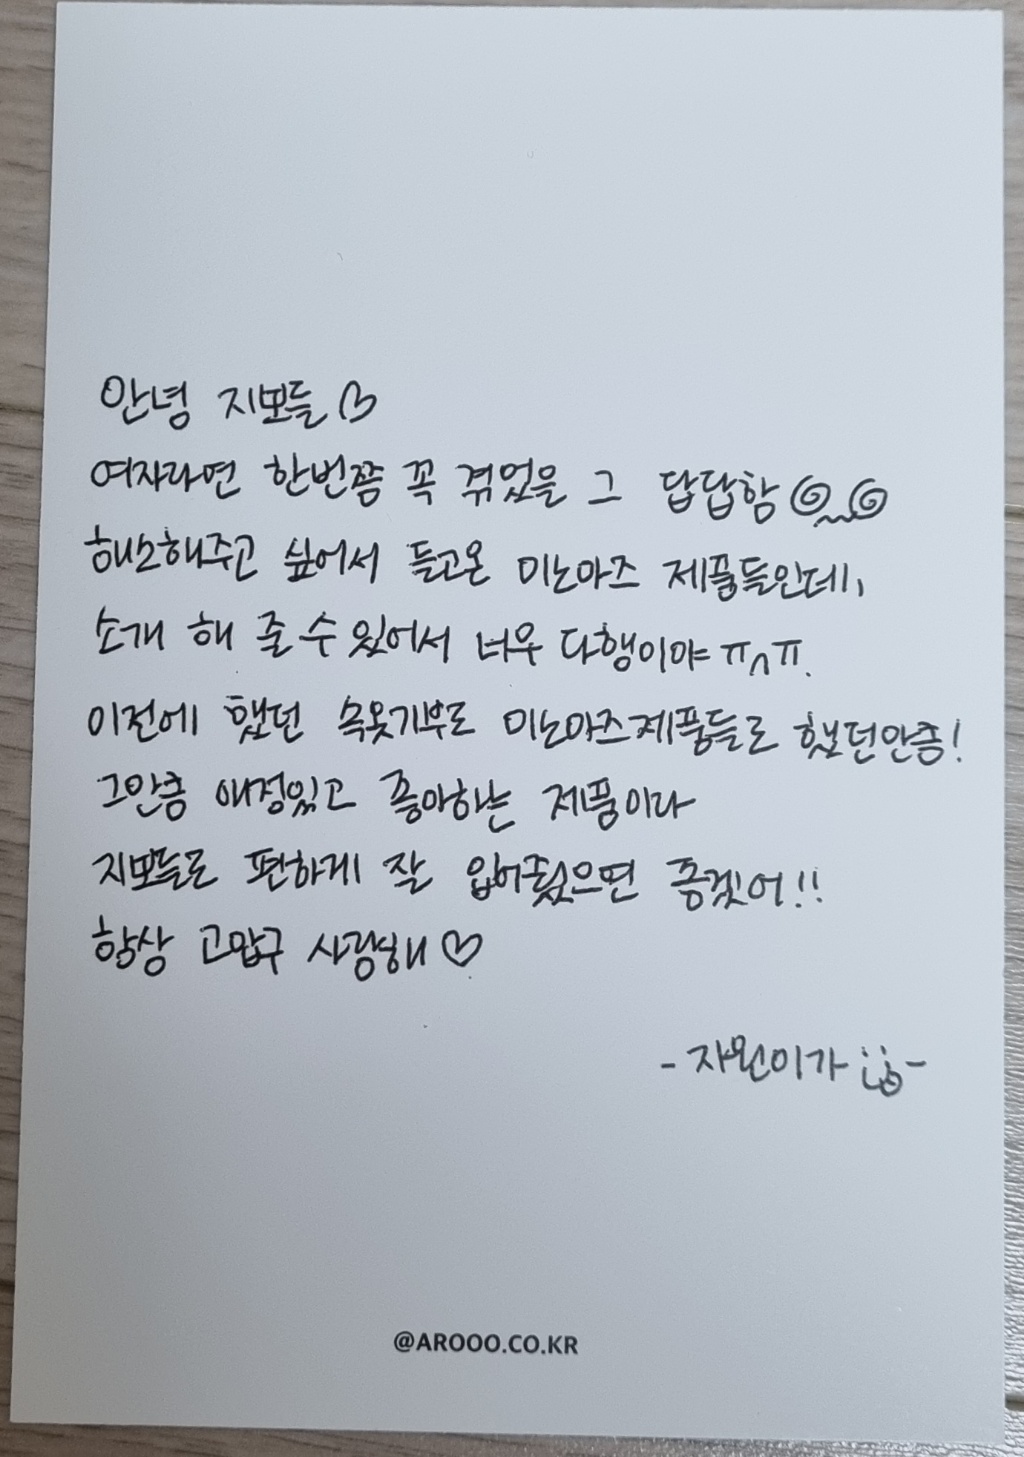 안녕 지뽀들♡
여자라면 한번쯤 꼭 겪었을 그 답답함@~@
해소해주고 싶어서 들고온 미노마즈 제품들인데,
소개 해 줄 수 있어서 너무 다행이야ㅠ^ㅠ.
이전에 했던 속옷기부도 미노마즈제품들로 했던만큼!
그만큼 애정있고 좋아하는 제품이라
지뽀들도 편하게 잘 입어줬으면 좋겠어!!
항상 고맙구 사랑해♡
-자원이가-
@AROOO.CO.KR